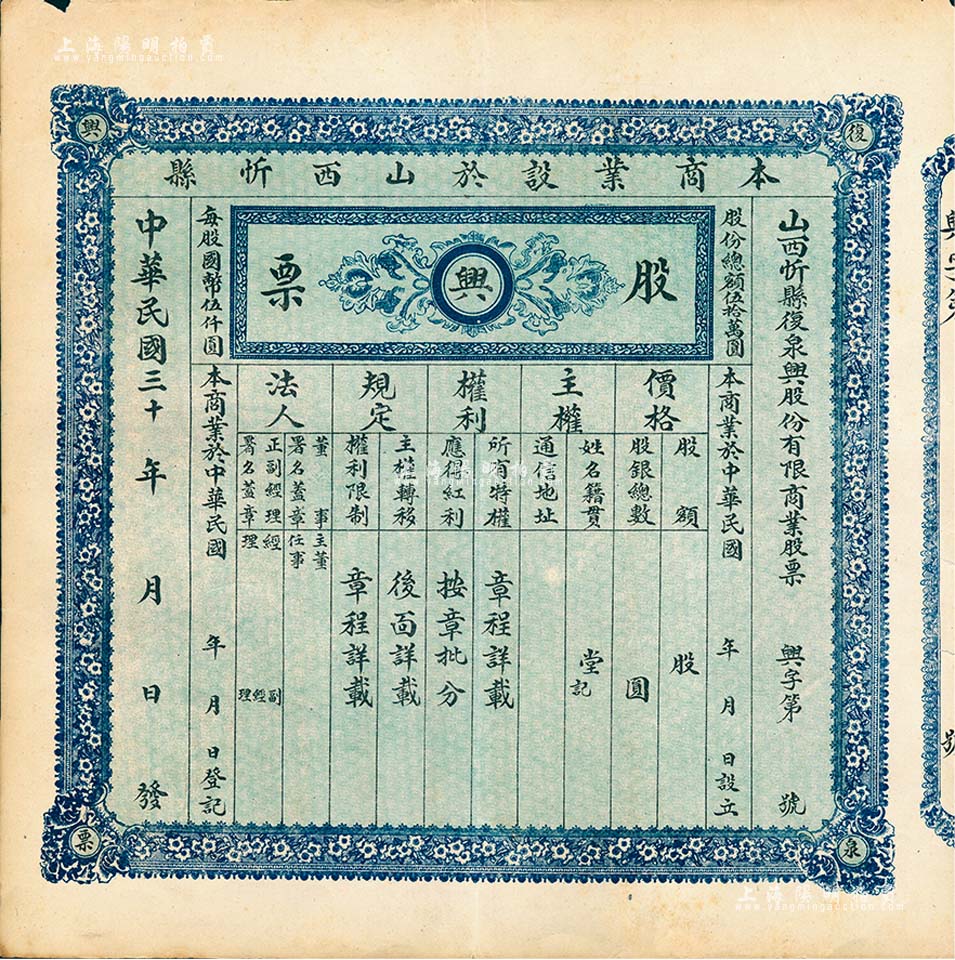 上海陽明拍賣
www.yangmingauction.com
復
興
泉
票
本商業設於山西忻縣
山西忻縣復泉興股份有限商業股票 興字第 號
股份總額伍拾萬圓
股 興 票
每股國幣伍仟圓
本商業於中華民國 年 月 日設立
價格
股額 股
股銀總數 圓
主權
姓名籍貫 堂記
通信地址
權利
所有特權 章程詳載
應得紅利 按章批分
規定
主權轉移 後面詳載
權利限制 章程詳載
法人
董事署名蓋章 主董任事
正副經理署名蓋章 經理 副經理
本商業於中華民國 年 月 日登記
中華民國三十 年 月 日發
上海陽明拍賣
www.yangmingauction.com
上海陽明拍賣
www.yangmingauction.com
號